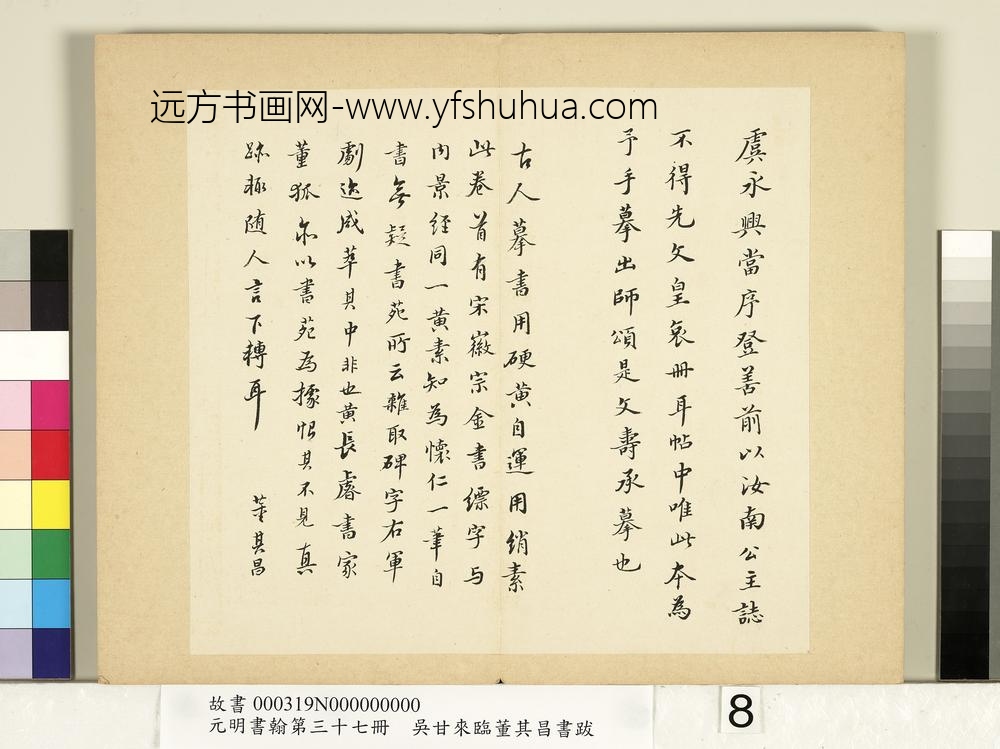 远方书画网-www.yfshuhua.com
虞永興當序登善前以汝南公主誌
不得先文皇哀冊耳帖中唯此本為
予手摹出師頌是文壽承摹也
古人摹書用硬黃自運用絹素
此卷首有宋徽宗金書縹字与
內景經同一黃素知為懷仁一筆自
書無疑書苑所云雜取碑字右軍
劇迹咸萃其中非也黃長睿書家
董狐亦以書苑為據恨其不見真
跡輒随人言下轉耳
董其昌
故書 000319N000000000
元明書翰第三十七冊 吳甘來臨董其昌書跋
8